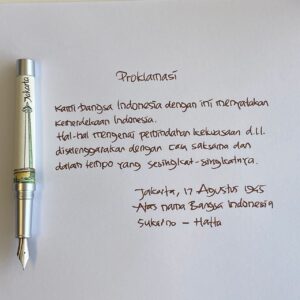 Jakarta
Proklamasi
Kami bangsa Indonesia dengan ini menyatakan
kemerdekaan Indonesia.
Hal-hal mengenai pemindahan kekuasaan d.l.l.
diselenggarakan dengan cara saksama dan
dalam tempo yang sesingkat-singkatnya.
Jakarta, 17 Agustus 1945
Atas nama Bangsa Indonesia
Sukarno - Hatta